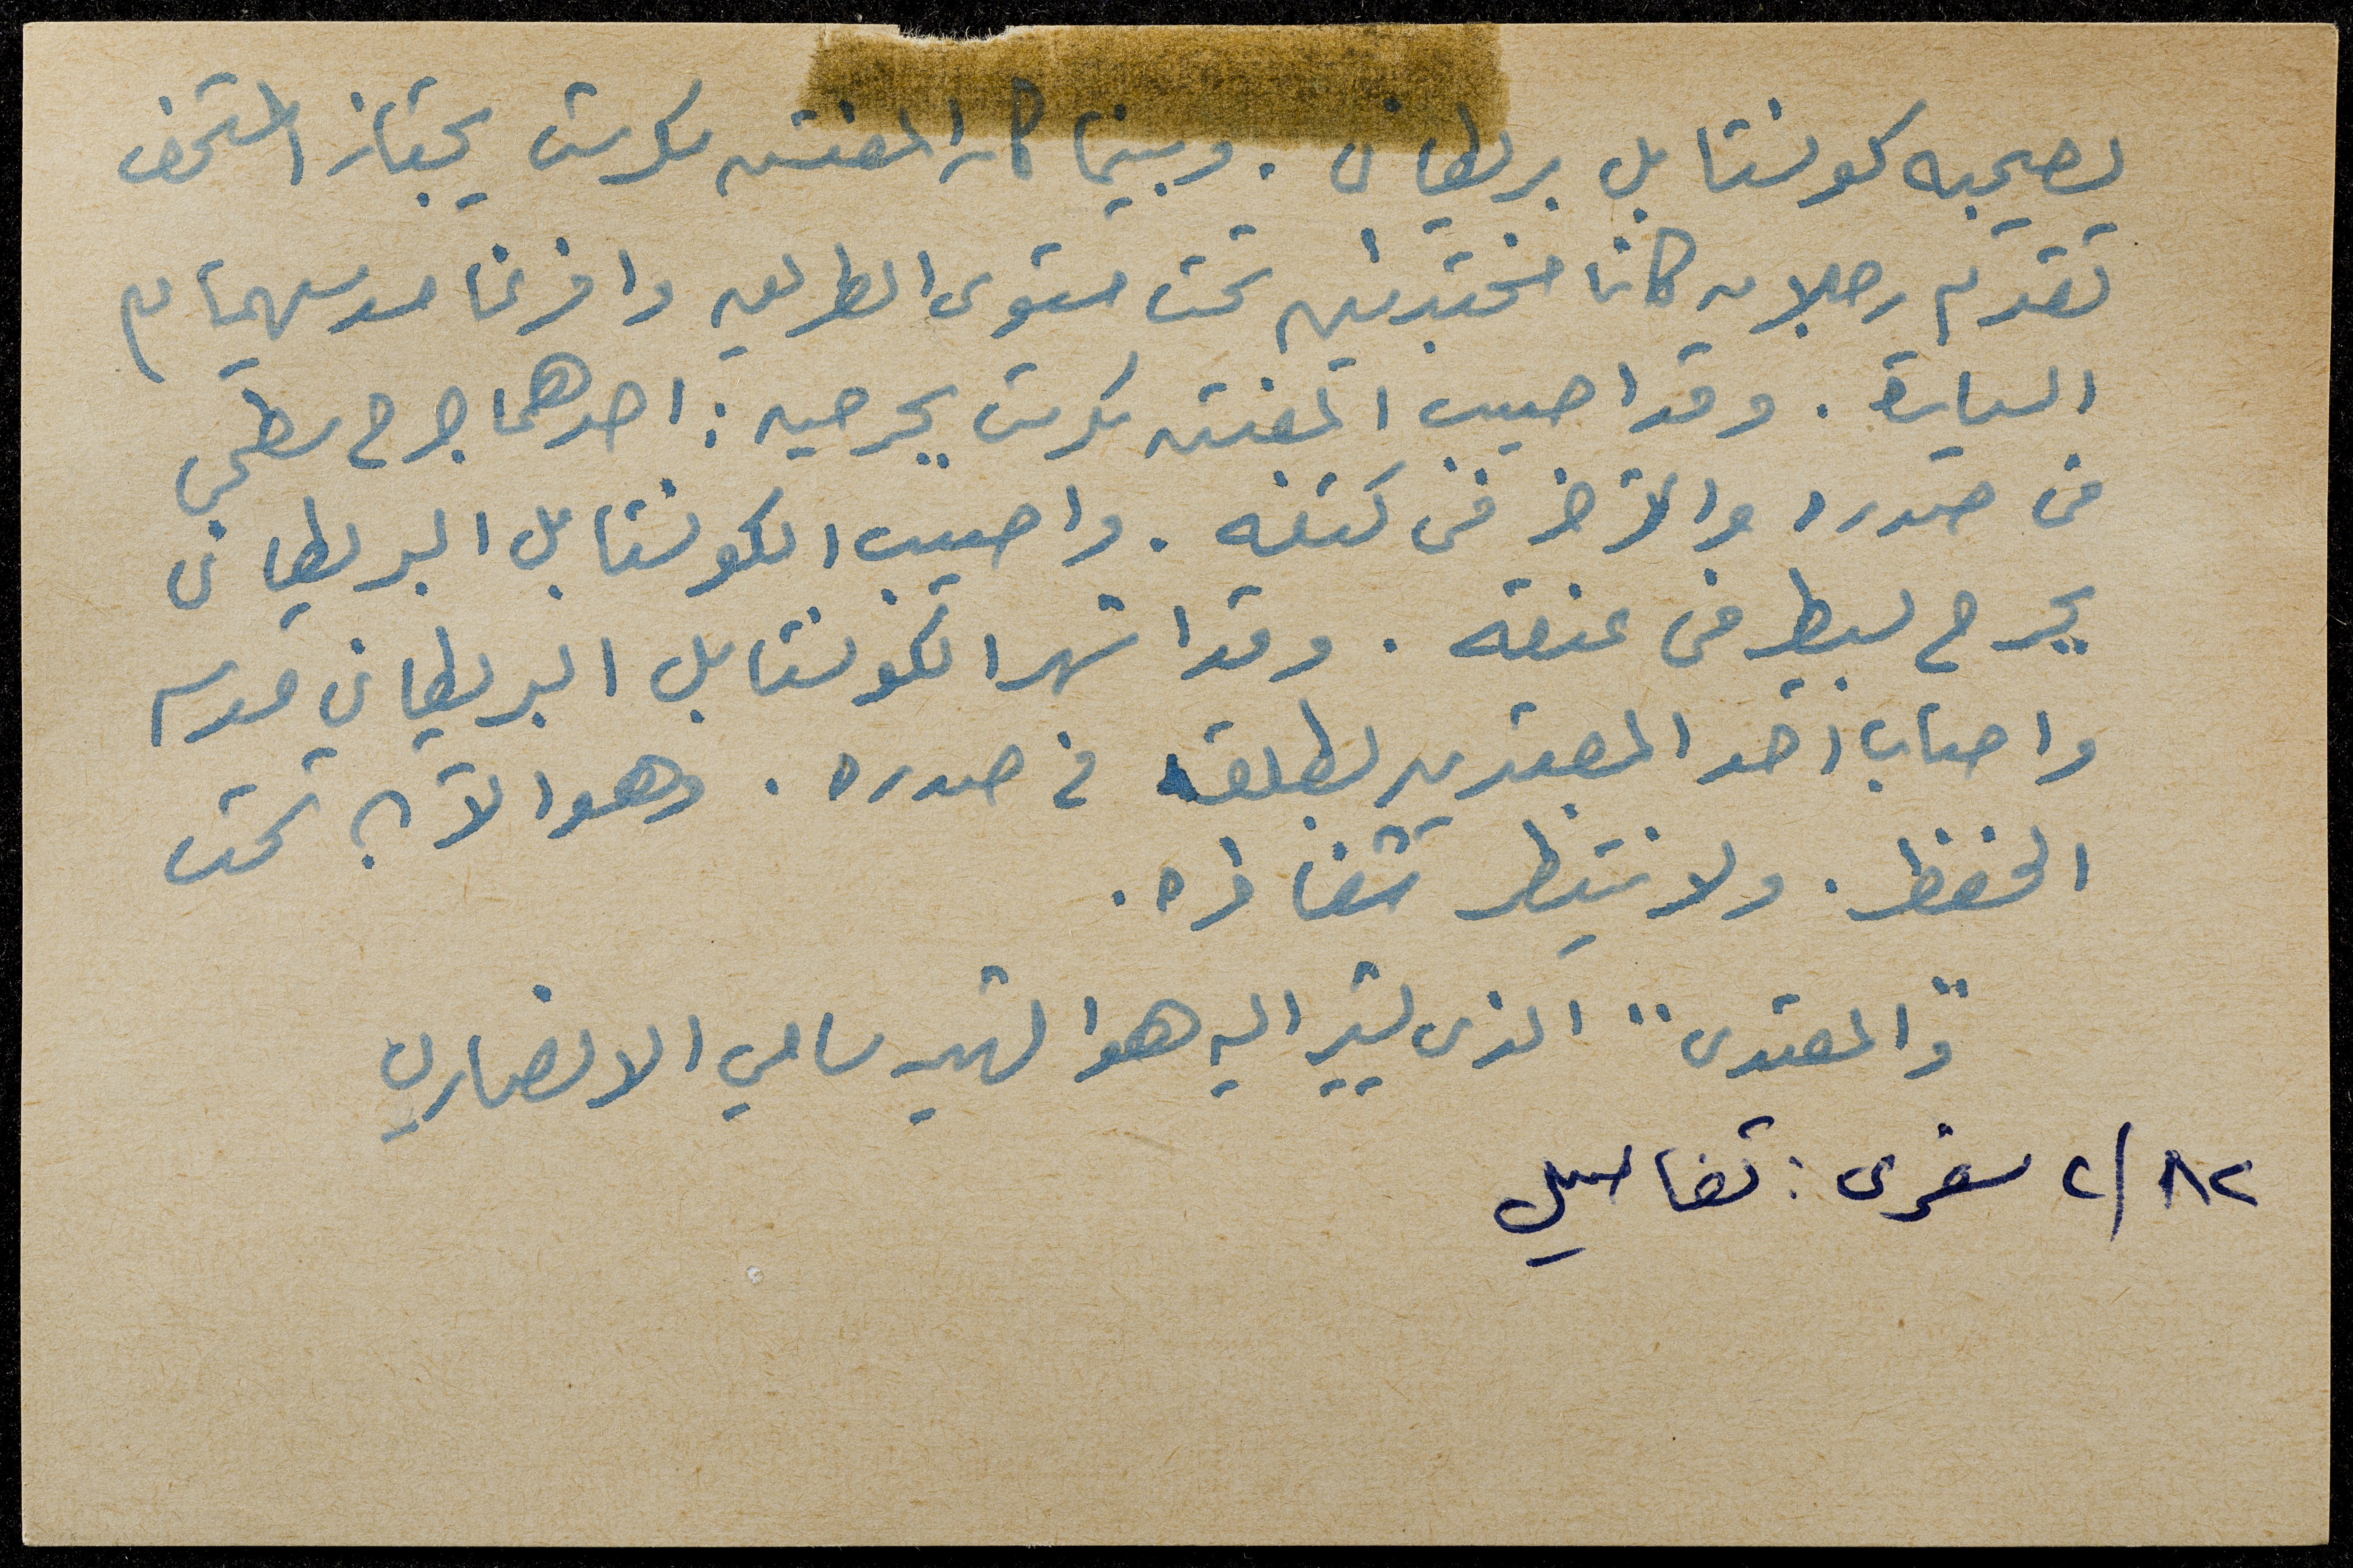 يصحبه كونستابل بريطاني . وبينما كان المفتش سكرست يجتاز المتحف
تقدم رجلان كانا مختبئين تحت مستوى الطريق وافرغا مسدسيهما في
السيارة . وقد اصيب المفتش سكرست بجرحين : احدهما جرح سطحي
في صدره والآخر في كتفه . واصيب الكونستابل البريطاني
بجرح بسيط في عنقه . وقد اشهر الكونستابل البريطاني مسدسه
واصاب احد المعتدين بطلقة في صدره . وهو الآن تحت
الحفظ . ولا ننتظر شفاءه .
"والمعتدى" الذى يشير اليه هو الشهيد سامي الانصاري
٢/٨٢ سفرى : تفاصيل